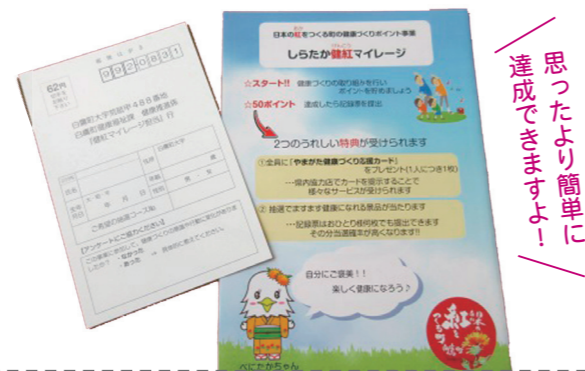 郵便はがき
992-0831
62円
白鷹町大字荒砥甲488番地
白鷹町健康福祉課 健康推進係
「健紅マイレージ担当」行
白鷹町大字
住所
氏名
年齢
歳
生年月日
年 月 日
男・女
ご希望の抽選コースNo.
【アンケートにご協力ください】
日本の紅をつくる町の健康づくりポイント事業
しらたか健紅マイレージ
けんこう
☆スタート!! 健康づくりの取り組みを行い
ポイントを貯めましょう
☆50ポイント 達成したら記録票を提出
2つのうれしい特典が受けられます
①全員に「やまがた健康づくり応援カード」
をプレゼント(1人につき1枚)
…県内協力店でカードを提示することで
様々なサービスが受けられます
② 抽選でますます健康になれる景品が当たります
…記録票はおひとり様何枚でも提出できます
その分当選確率が高くなります!!
自分にご褒美!!
楽しく健康になろう♪
べにたかちゃん
思ったより簡単に
達成できますよ!